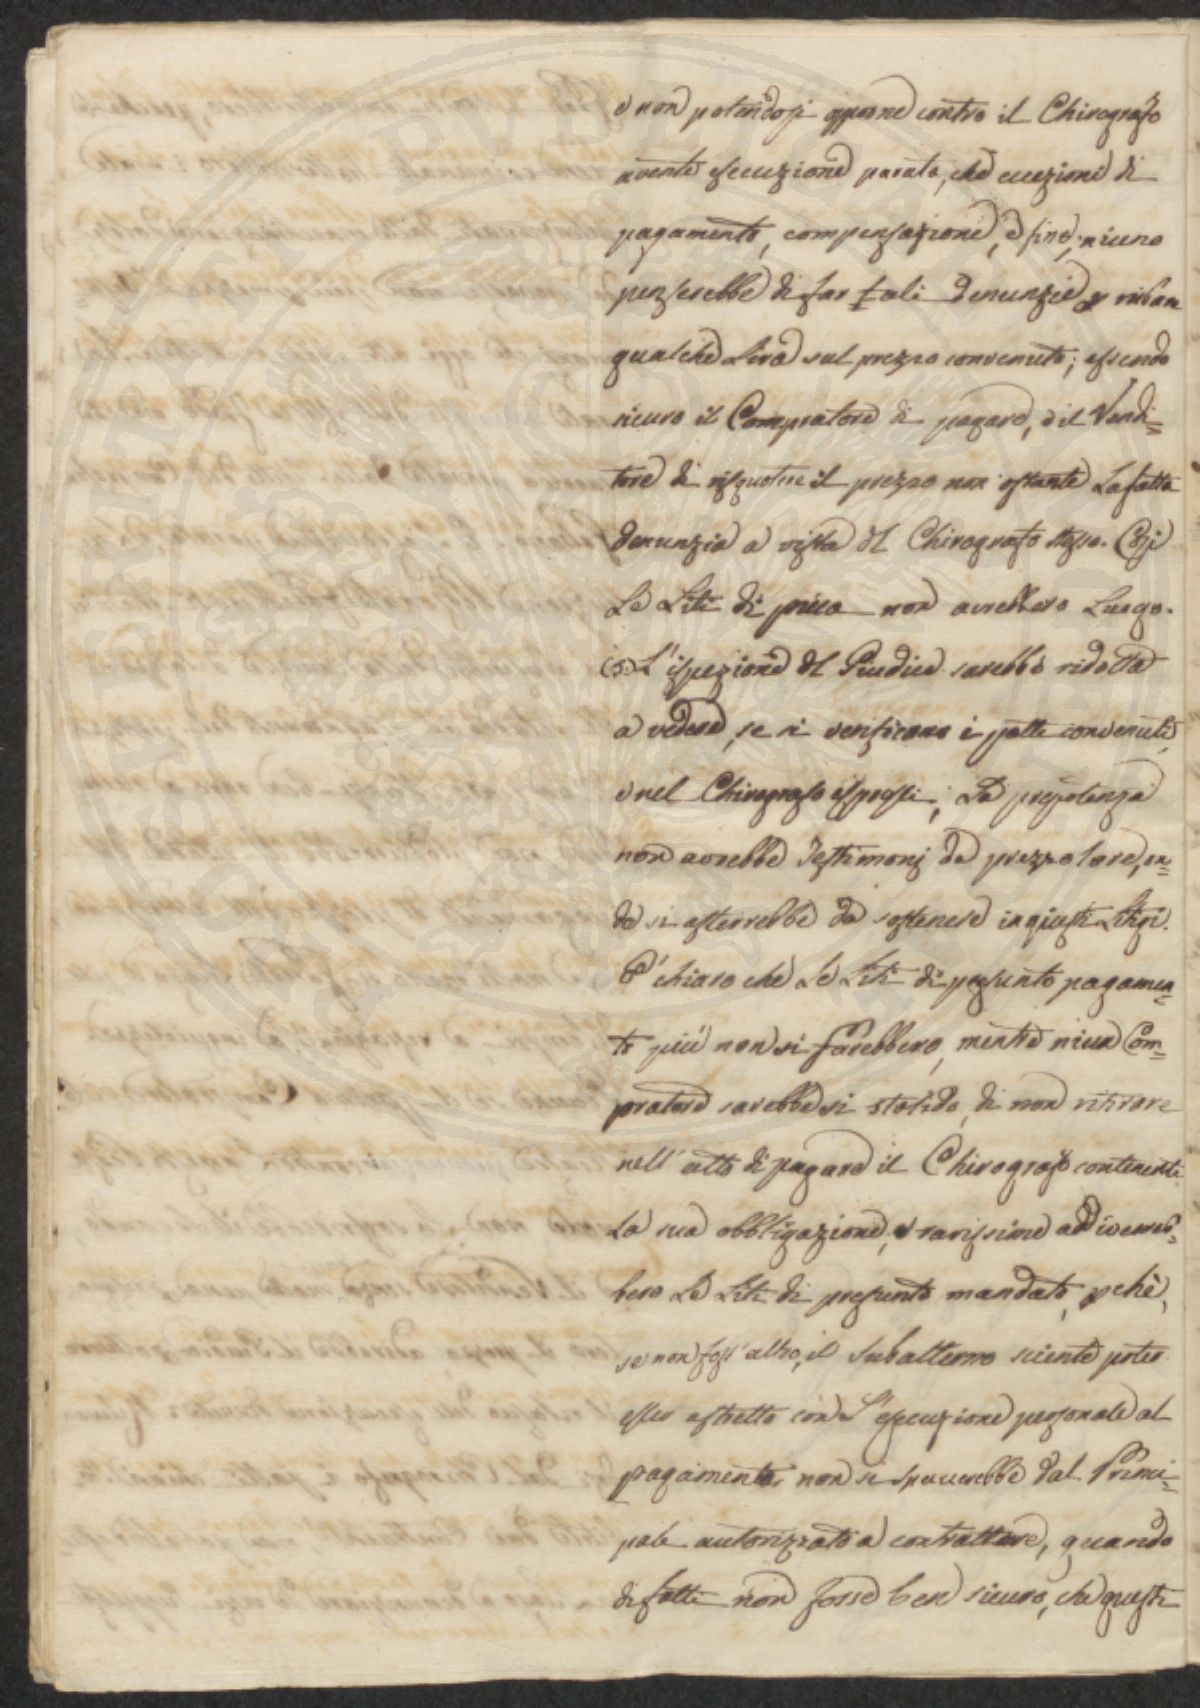 e non potendosi opporre contro il Chirografo
avente esecuzione parata, che eccezione di
pagamento, compensazione, e fine, niuno
penserebbe di far tali denunzie p rubare
qualche Lira sul prezzo convenuto; essendo
sicuro il Compratore di pagare, e il Vendi=
tore di risquotere il prezzo non ostante La fatta
denunzia a vista del Chirografo stesso. Così
Le Liti di picca non avrebbero Luogo.
L'ispezione del Giudice sarebbe ridotta
a vedere, se si verificano i patti convenuti,
e nel Chirografo espressi; La prepotenza
non avrebbe Testimonj da prezzolare, on=
de si asterrebbe da sostenere ingiusti Litigi.
E' chiaro che Le Liti di presunto pagamen=
to più non si farebbero, mentre niun Com=
pratore sarebbe si stolido, di non ritirare
nell'atto di pagare il Chirografo contenente
La sua obbligazione, e rarissime addiverreb=
bero Le Liti di presunto mandato, pchè,
se non foss'altro, il Subalterno sciente poter
esser astretto con L'esecuzione personale al
pagamento, non si spaccerebbe dal Princi=
pale autorizzato a contrattare, quando
di fatti non fosse ben sicuro, che questi